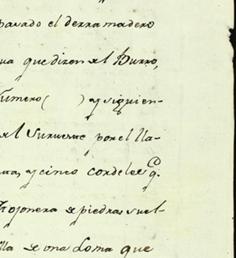 pasado el derramadero
ua que dizen el Burro,
Numero ( ) y siguien-
el Surueste por el lla-
y cinco cordeles q.
Mojonera de piedras suel-
lla de una Loma que